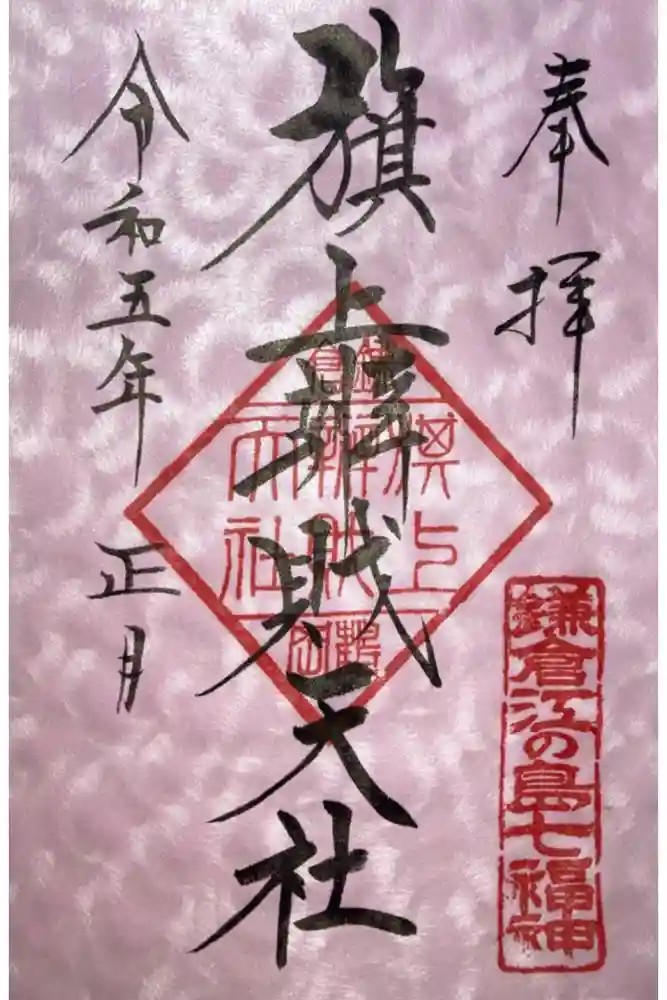 奉拝
旗上辨財天社
令和五年 正月
鎌倉
旗上
辨財
天社
鎌倉江の島七福神